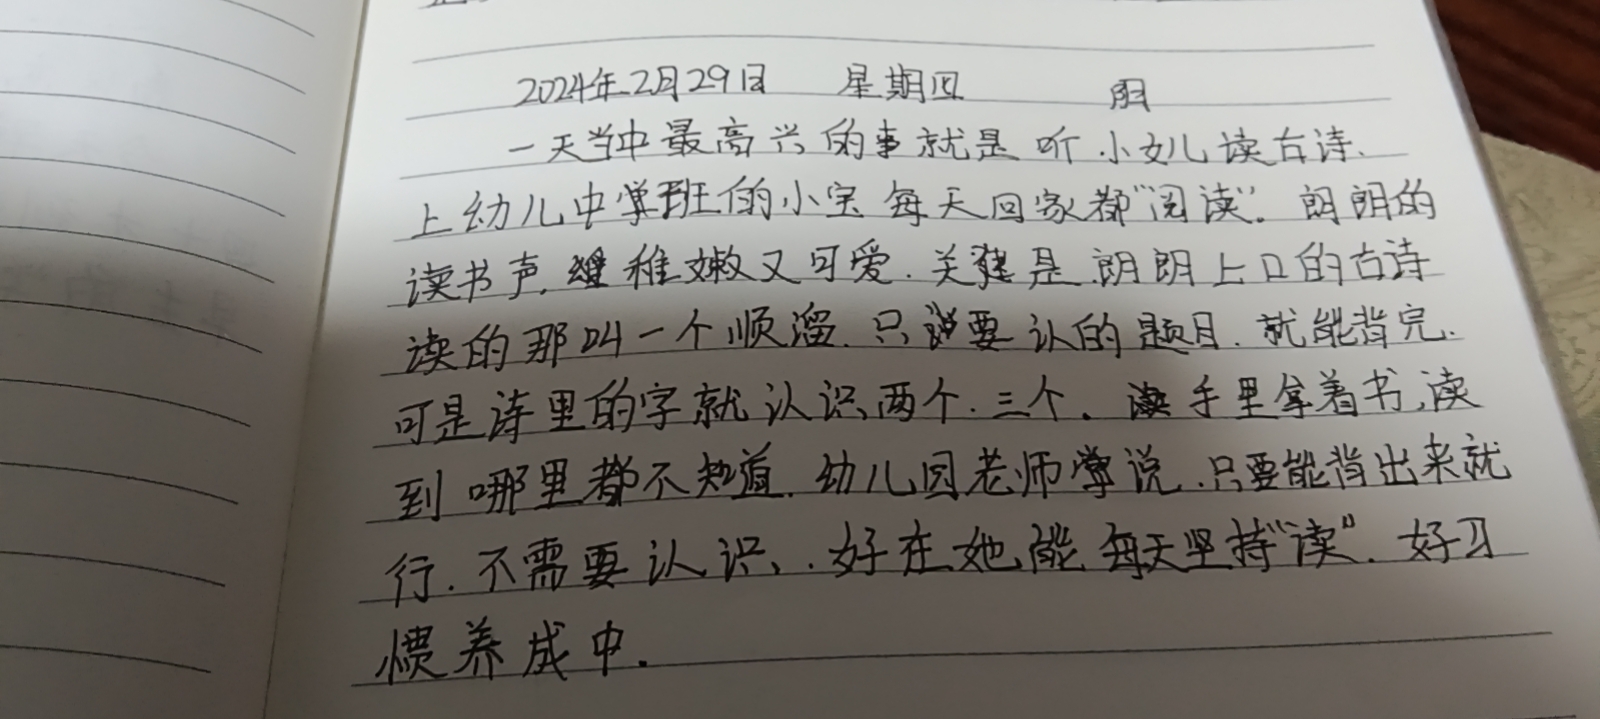 2024年2月29日 星期四 阴
一天当中最高兴的事就是听小女儿读古诗、
上幼儿中班的小宝每天回家都"阅读"。朗朗的
读书声,稚嫩又可爱.关键是.朗朗上口的古诗
读的那叫一个顺溜.只要认的题目.就能背完.
可是诗里的字就认识两个.三个.手里拿着书,读
到哪里都不知道.幼儿园老师说.只要能背出来就
行.不需要认识、.好在她能每天坚持"读".好习
惯养成中.